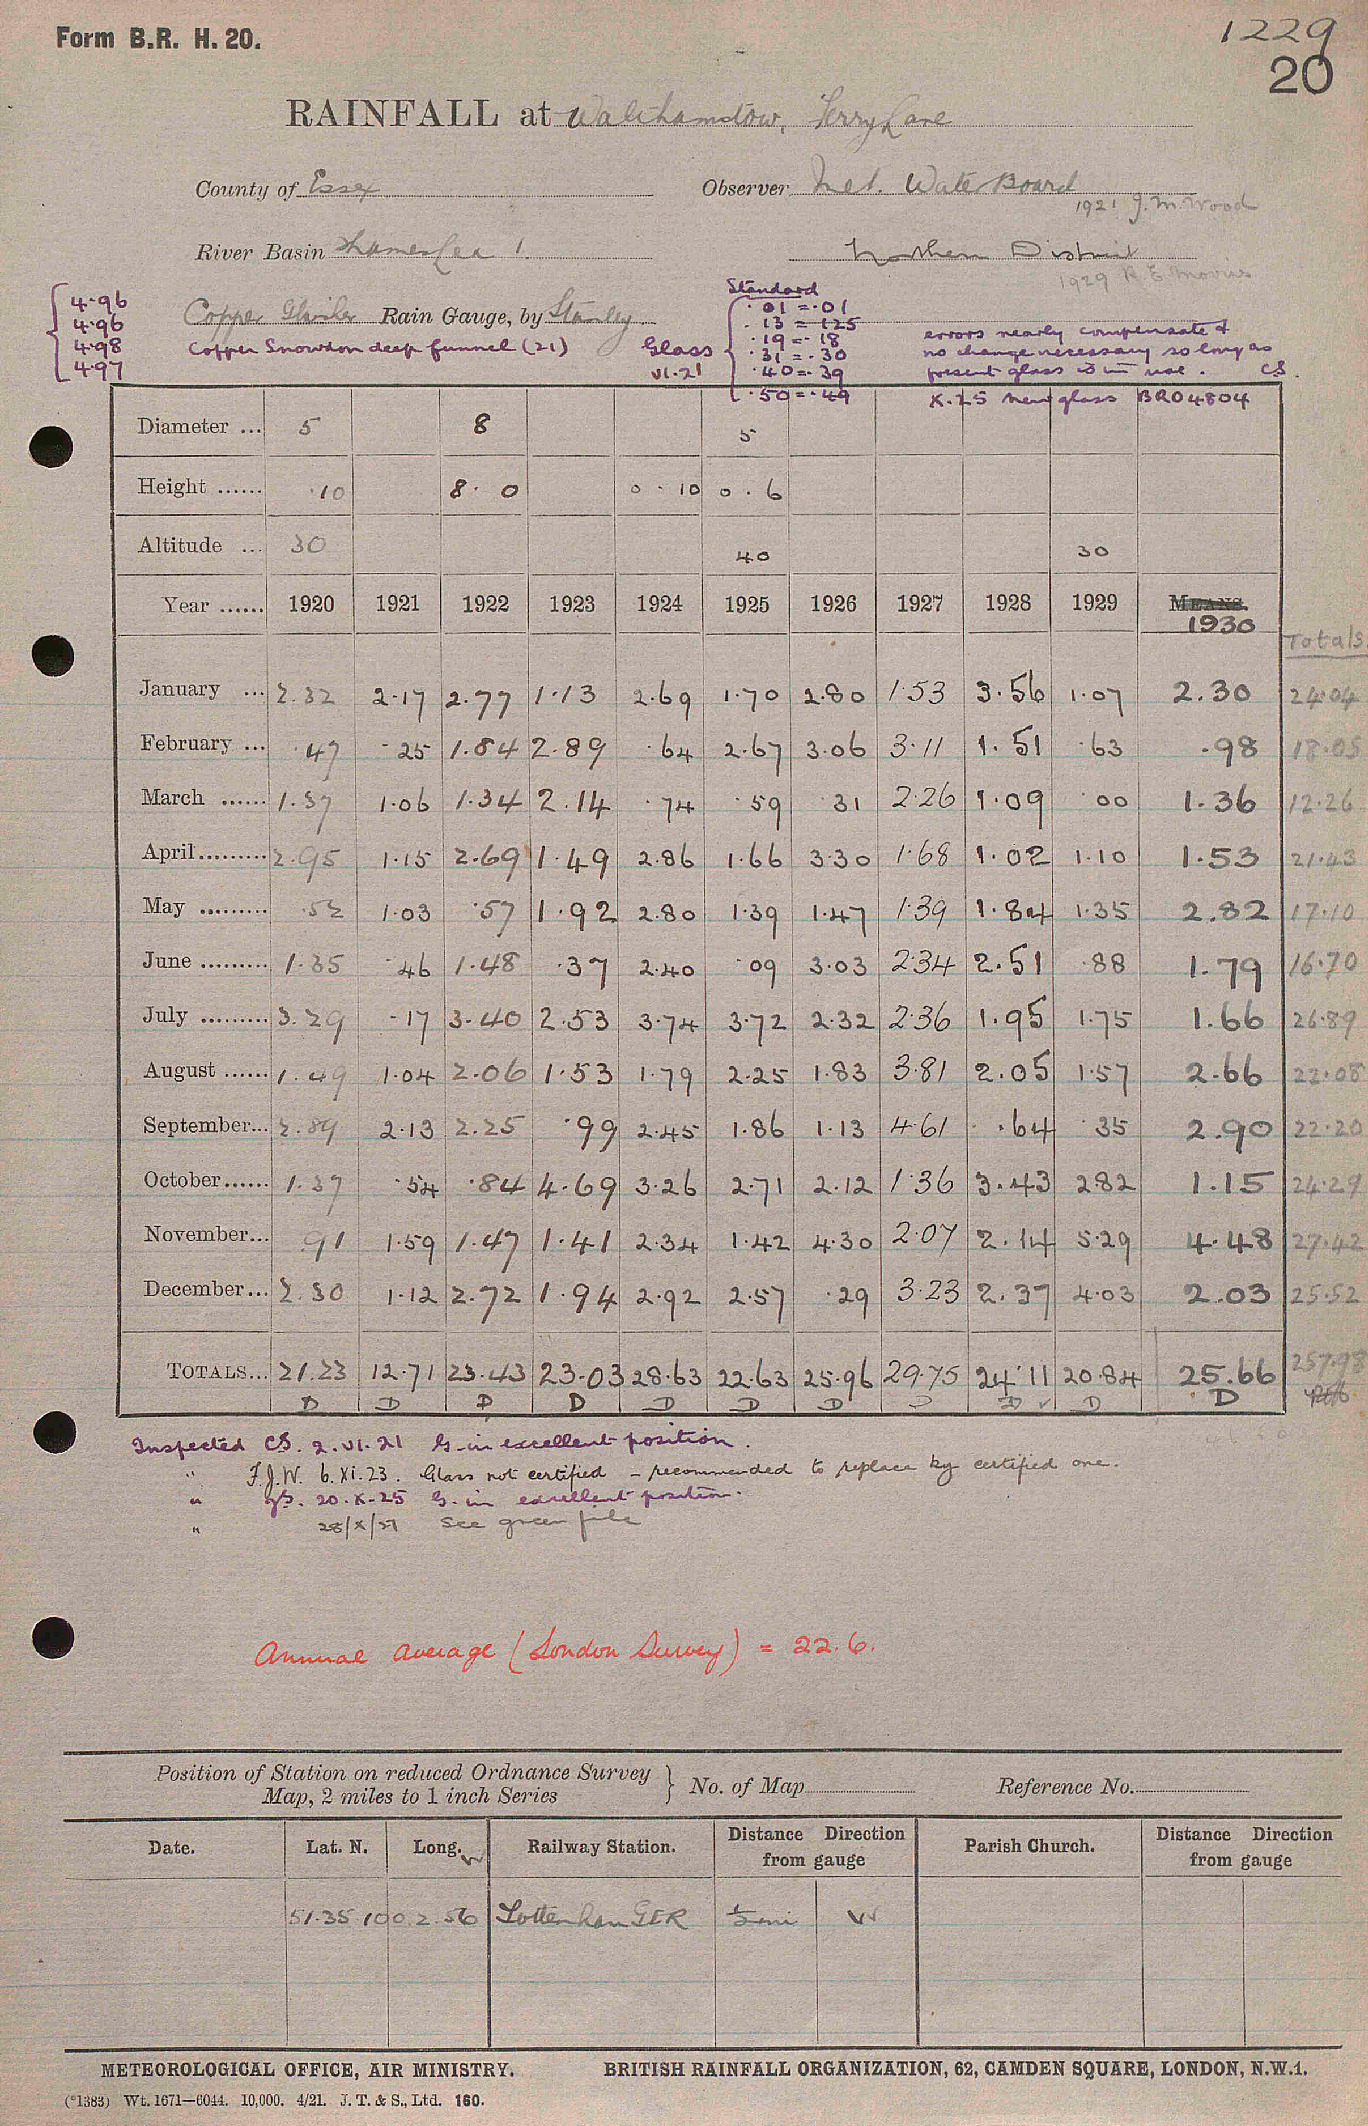 Form B.R. H. 20.
1229
20
RAINFALL at Walthamstow, Ferry Lane
County of Essex
Observer Met. Water Board
1921 J.M. Wood
River Basin Thames Lea 1.
Northern District
1929 R.E. Movris
4.96
4.96
4.98
4.97
Copper Glaisher Rain Gauge, by Stanley.
Copper Snowdon deep funnel (21)
Glass
VI.21
Standard
.01 = .01
.13 = .125
.19 = .18
.31 = .30
.40 = .39
.50 = .49
errors nearly compensate &
no change necessary so long as
present glass is in use. CS.
X.25 new glass BR04804
Diameter ... 5 8 5
Height ...... .10 8. 0 0 . 10 0 . 6
Altitude ... 30 40 30
Year ...... 1920 1921 1922 1923 1924 1925 1926 1927 1928 1929 MEANS.
1930
Totals.
January ... 2.32 2.17 2.77 1.13 2.69 1.70 2.80 1.53 3.56 1.07 2.30 24.04
February ... .47 .25 1.84 2.89 .64 2.67 3.06 3.11 1.51 .63 .98 18.05
March ...... 1.37 1.06 1.34 2.14 .74 .59 31 2.26 1.09 .00 1.36 12.26
April ......... 2.95 1.15 2.69 1.49 2.86 1.66 3.30 1.68 1.02 1.10 1.53 21.43
May ......... .52 1.03 .57 1.92 2.80 1.39 1.47 1.39 1.84 1.35 2.82 17.10
June ......... 1.35 .46 1.48 .37 2.40 .09 3.03 2.34 2.51 .88 1.79 16.70
July ......... 3.29 .17 3.40 2.53 3.74 3.72 2.32 2.36 1.95 1.75 1.66 26.89
August ...... 1.49 1.04 2.06 1.53 1.79 2.25 1.83 3.81 2.05 1.57 2.66 22.08
September... 2.89 2.13 2.25 .99 2.45 1.86 1.13 4.61 .64 .35 2.90 22.20
October...... 1.37 .54 .84 4.69 3.26 2.71 2.12 1.36 3.43 2.82 1.15 24.29
November... .91 1.59 1.47 1.41 2.34 1.42 4.30 2.07 2.14 5.29 4.48 27.42
December... 2.30 1.12 2.72 1.94 2.92 2.57 .29 3.23 2.37 4.03 2.03 25.52
TOTALS... 21.23 12.71 23.43 23.03 28.63 22.63 25.96 29.75 24.11 20.84 25.66 257.98
D D D D D D D D D D D
Inspected CS. 2.VI.21 G. in excellent position.
" F.J.W. 6.XI.23. Glass not certified - recommended to replace by certified one.
" 20.X.25 G. in excellent position.
" 28/X/27 See green file
Annual average (London Survey) = 22.6.
Position of Station on reduced Ordnance Survey
Map, 2 miles to 1 inch Series
No. of Map
Reference No.
Date. Lat. N. Long. W Railway Station. Distance Direction from gauge Parish Church. Distance Direction from gauge
51.35.10 0.2.56 Tottenham GER ½ mi W
METEOROLOGICAL OFFICE, AIR MINISTRY. BRITISH RAINFALL ORGANIZATION, 62, CAMDEN SQUARE, LONDON, N.W.1.
(*1383) Wt. 1671—6044. 10,000. 4/21. J. T. & S., Ltd. 160.